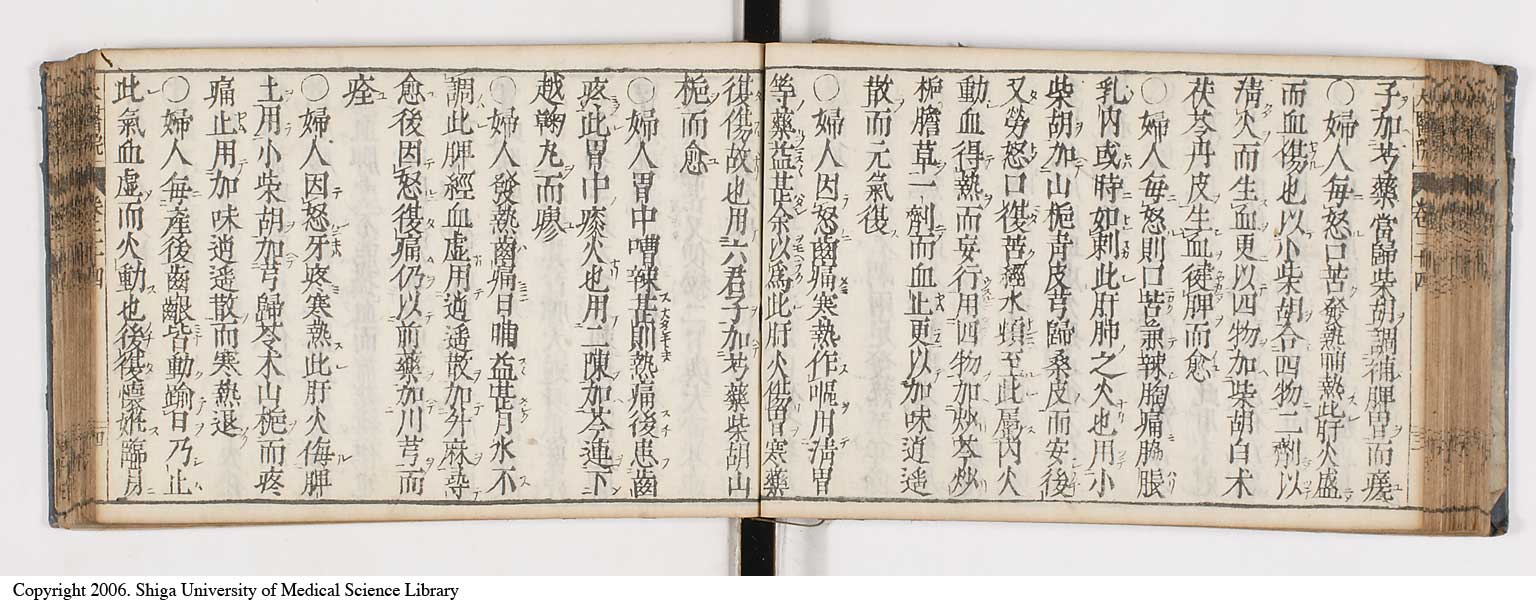 子加芍藥當歸柴胡調補脾胃而瘥
〇婦人每怒口苦發熱晡熱此肝火盛
而血傷也以小柴胡合四物二劑以
淸火而生血更以四物加柴胡白朮
茯苓丹皮生血健脾而愈
〇婦人每怒則口苦兼辣胸痛脇脹
乳內或時如刺此肝肺之火也用小
柴胡加山梔靑皮芎歸桑皮而安後
又勞怒口復苦經水頓至此屬內火
動血得熱而妄行用四物加炒芩炒
梔膽草一劑而血止更以加味逍遥
散而元氣復
〇婦人因怒齒痛寒熱作嘔用淸胃
等藥益甚余以爲此肝火傷胃寒藥
復傷故也用六君子加芍藥柴胡山
梔而愈
〇婦人胃中嘈辣甚則熱痛後患齒
疼此胃中痰火也用二陳加芩連下
越鞠丸而瘳
〇婦人發熱齒痛日晡益甚月水不
調此脾經血虛用逍遥散加升麻尋
愈後因怒復痛仍以前藥加川芎而
痊
〇婦人因怒牙疼寒熱此肝火侮脾
土用小柴胡加芎歸苓朮山梔而疼
痛止用加味逍遥散而寒熱退
〇婦人每產後齒齦皆動踰日乃止
此氣血虛而火動也後復懷妊臨月